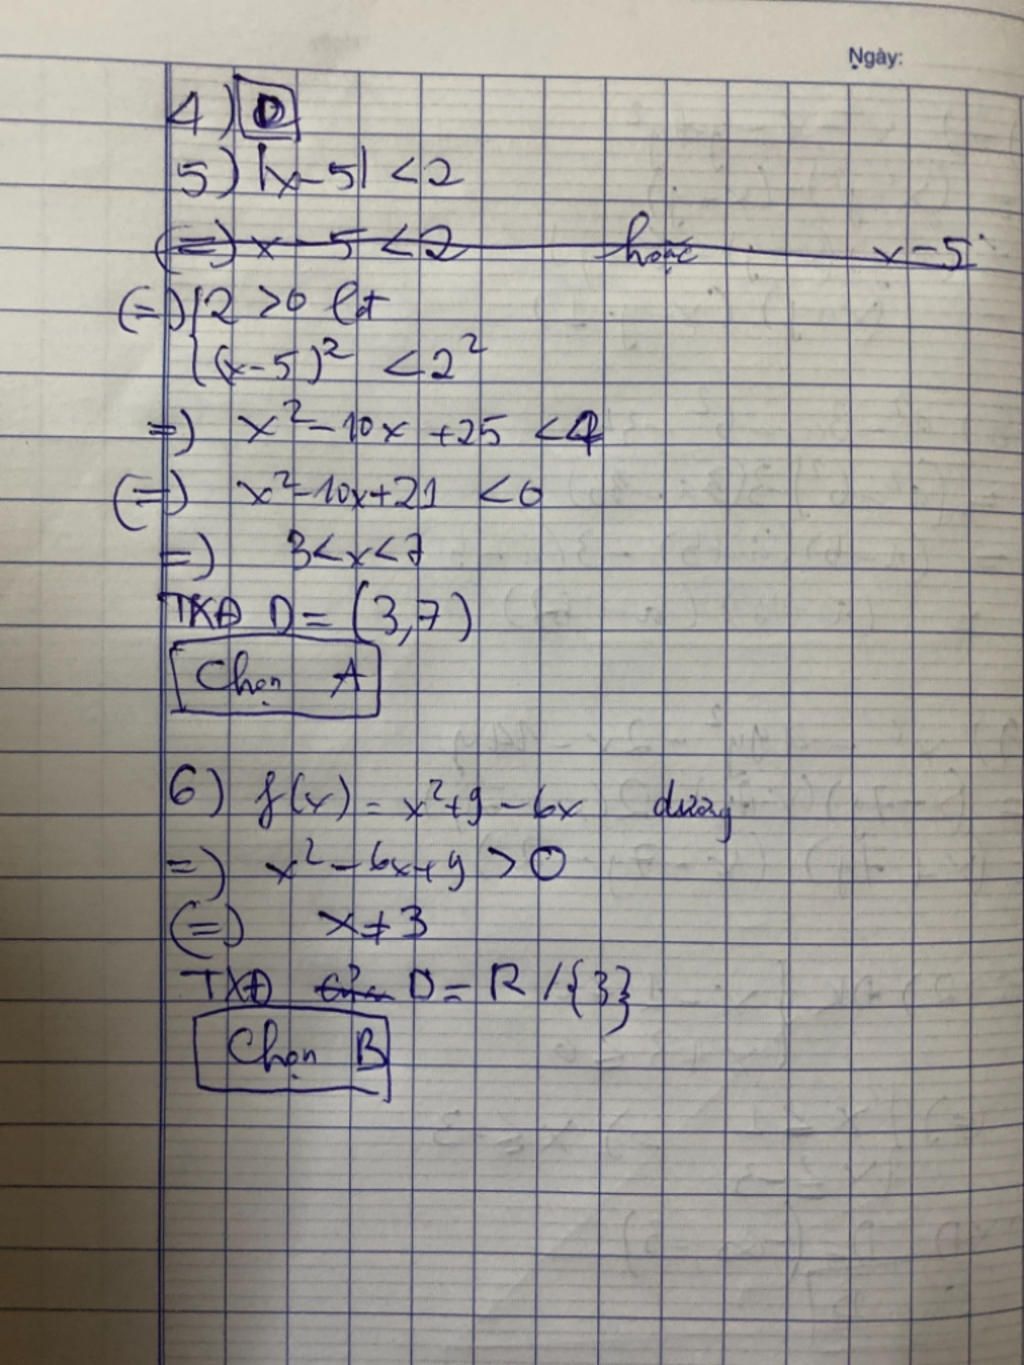 Ngày:
4) D
5) |x-5| <2
(=) x-5 <2 hoặc x-5
(=) { 2 >0 lđ
(x-5)² <2²
=) x²-10x+25 <4
(=) x²-10x+21 <0
=) 3<x<7
TXĐ D = (3,7)
Chọn A
6) f(x) = x²+9-6x dương
=) x²-6x+9 >0
(=) x≠3
TXĐ D = R /{3}
Chọn B